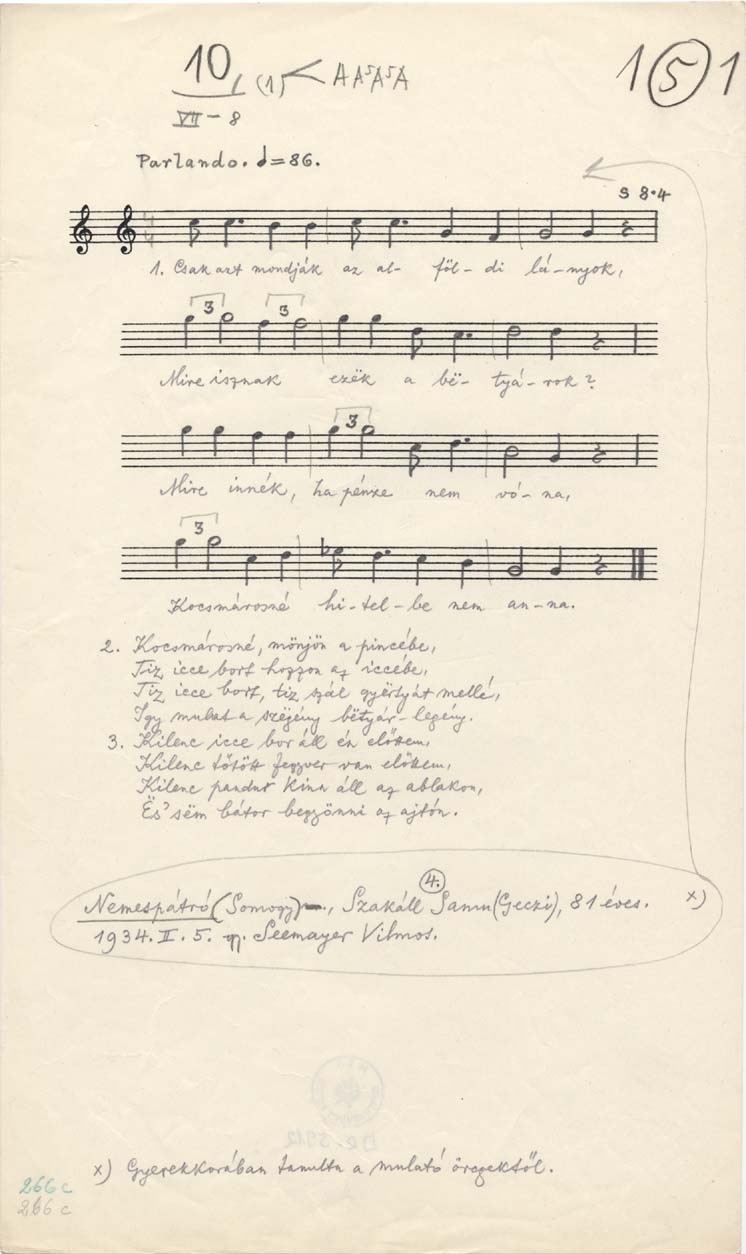 10, (1) < A A⁵A⁵A
1(5)1
VII - 8
Parlando. ♩=86.
S 8.4
1. Csak azt mondják az al- föl- di lá-nyok,
3 3
Mire isznak ezëk a bë- tyá-rok?
3
Mire innék, ha pénze nem vó-na,
3
Kocsmárosné hi-tel-be nem an-na.
2. Kocsmárosné, mönjön a pincébe,
Tiz icce bort hozzon az iccébe,
Tiz icce bort, tiz szál gyërtyát mellé,
Igy mulat a szëjény bëtyár-legény.
3. Kilenc icce bor áll én előttem,
Kilenc tőtött fegyver van előttem,
Kilenc pandur kinn áll az ablakon,
Ës' sëm bátor begyönni az ajtón.
4.
Nemespátró (Somogy), Szakáll Samu (Geczi), 81 éves. x)
1934. II. 5. gy. Seemayer Vilmos.
x) Gyerekkorában tanulta a mulató öregektől.
266 c
266 c